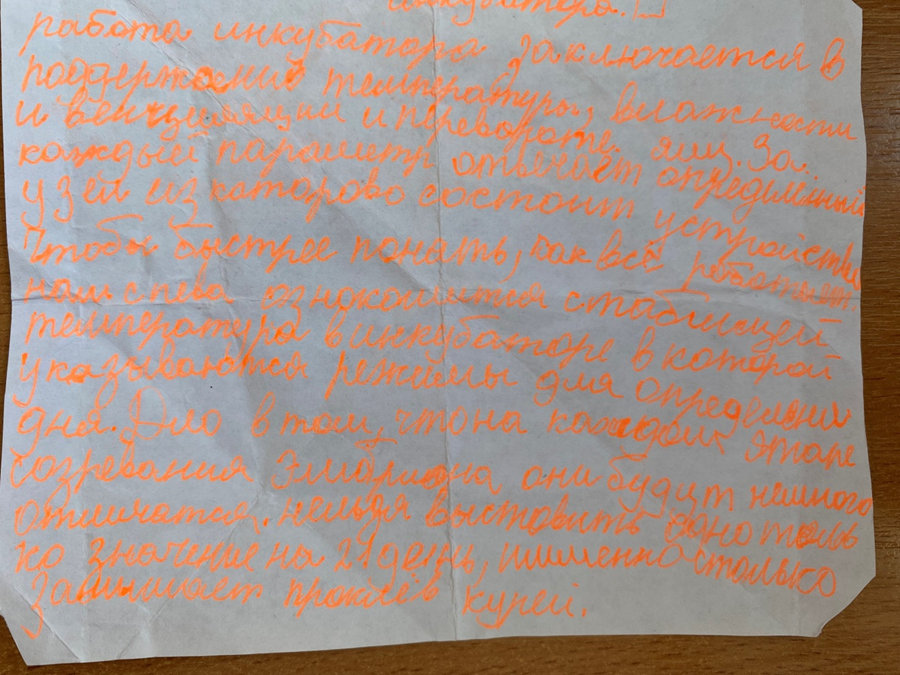 инкубатора.
работа инкубатора заключается в
поддержаний температуры, влажности
и венчиляции и перевороте яиц. За
каждый параметр отвечает определённый
узел из каторово состоит устройства
Чтобы быстрее понать, как всё работает.
нам с
температура в инкубаторе в каторой
указываются режимы для определений
дна. Дло в том, что на каждом этапе
созревания Эмбриона они будит немного
отличатся. нельзя выстовить одно толь
ко значение на 21 день, именно столько
занимает курей.